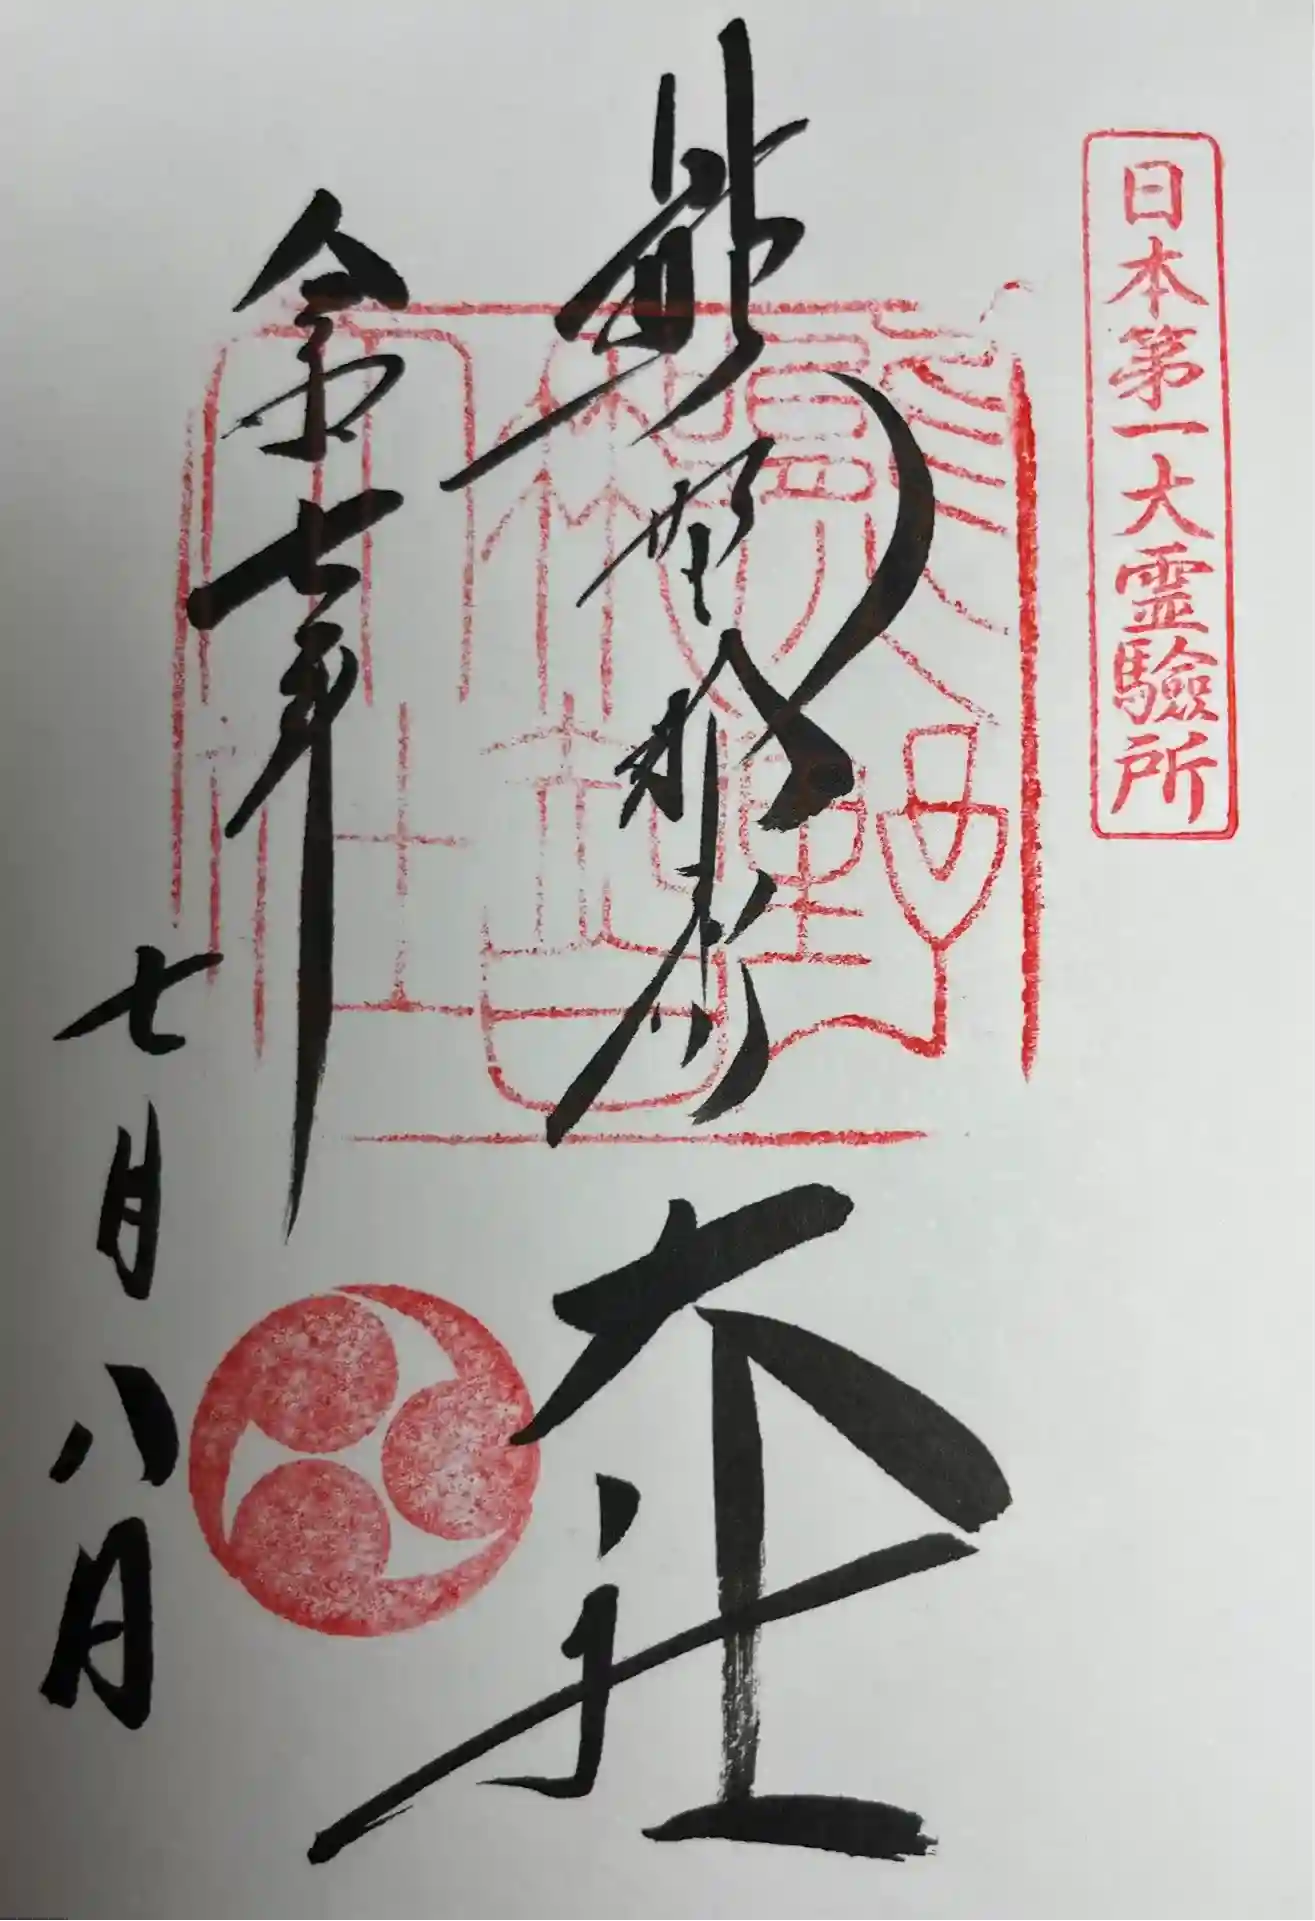 日本第一大霊験所
熊野那智大社
令和七年
七月八日
熊野
那智
大社